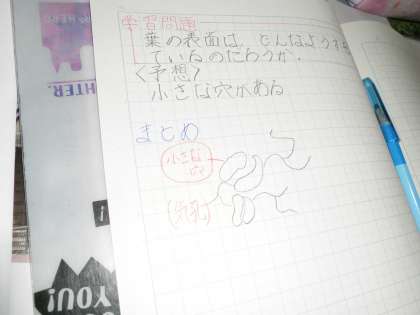 学習問題
葉の表面は、どんなようすをし
ているのだろうか。
<予想>
小さな穴がある
まとめ
小さな
穴
(気孔)
HTER.
YOU!